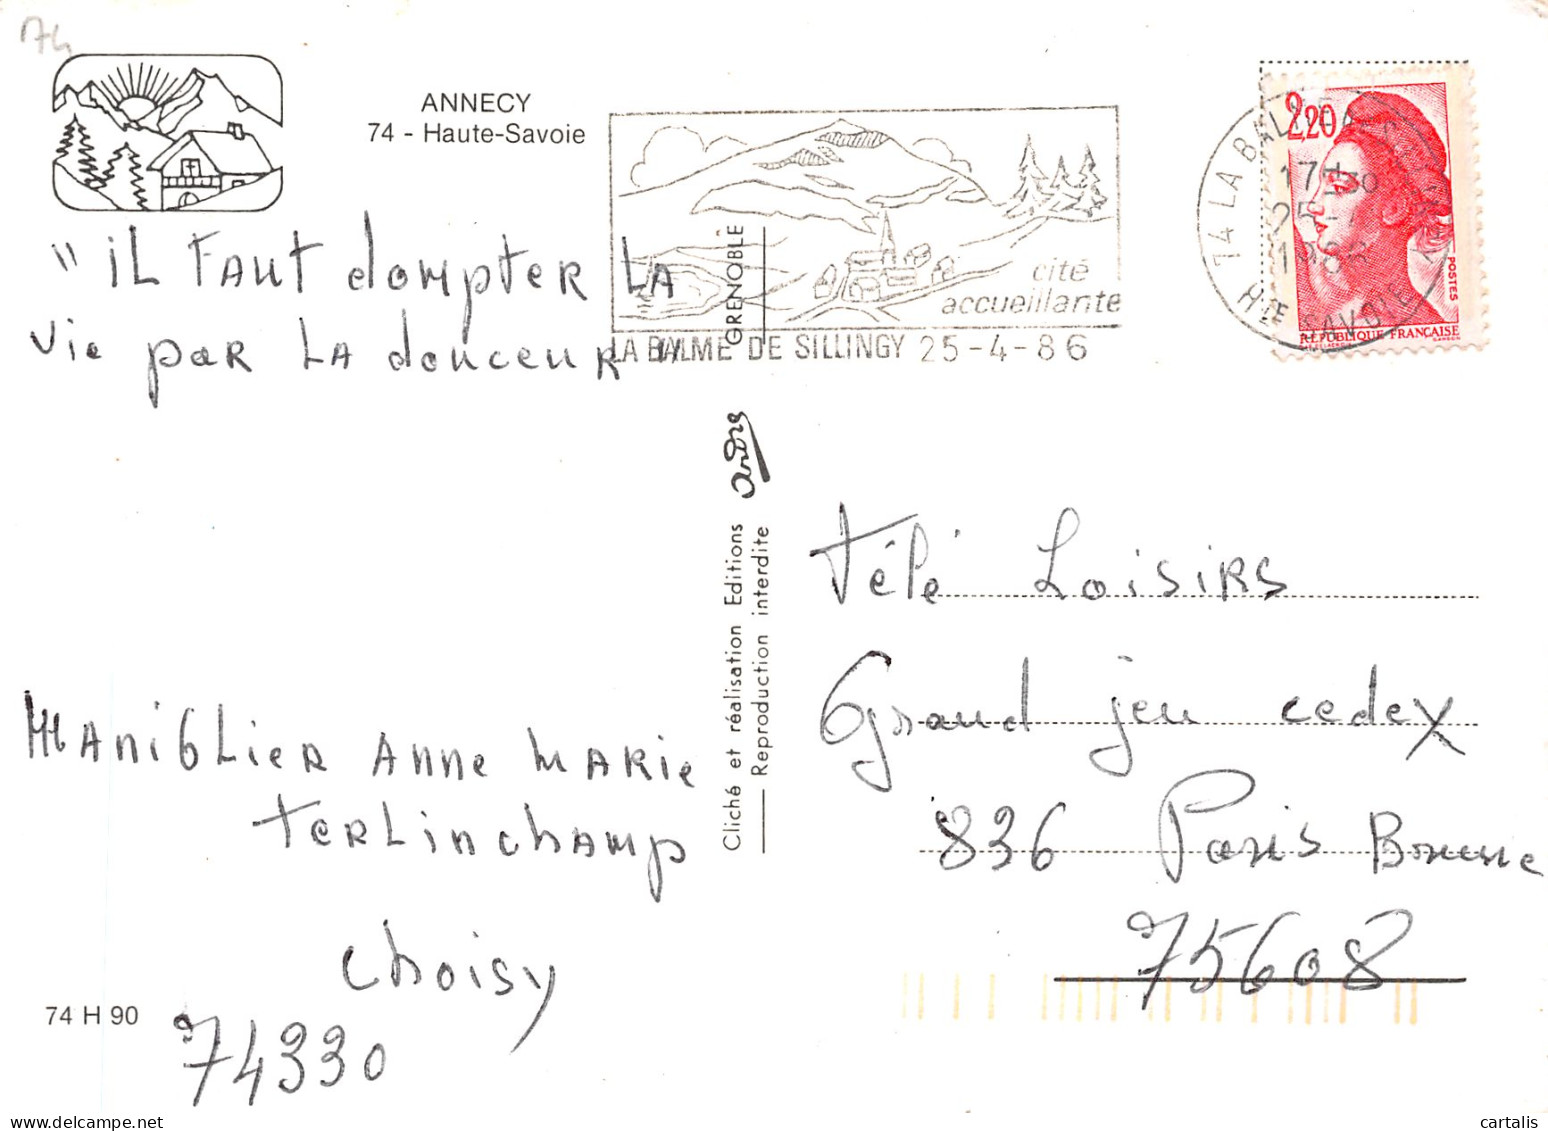 74
ANNECY
74 - Haute-Savoie
"IL FAUT dompter LA
vie par LA douceur "
cité
accueillante
LA BALME DE SILLINGY 25-4-86
74 LA BALME DE
17H30
25-4
1986
Hte SAVOIE
2,20
POSTES
REPUBLIQUE FRANÇAISE
GRENOBLE
André
Cliché et réalisation Editions
Reproduction interdite
Télé Loisirs
Grand jeu cedex
836 Paris Bourse
75608
Maniglier Anne Marie
Terlinchamp
Choisy
74330
74 H 90
cartalis